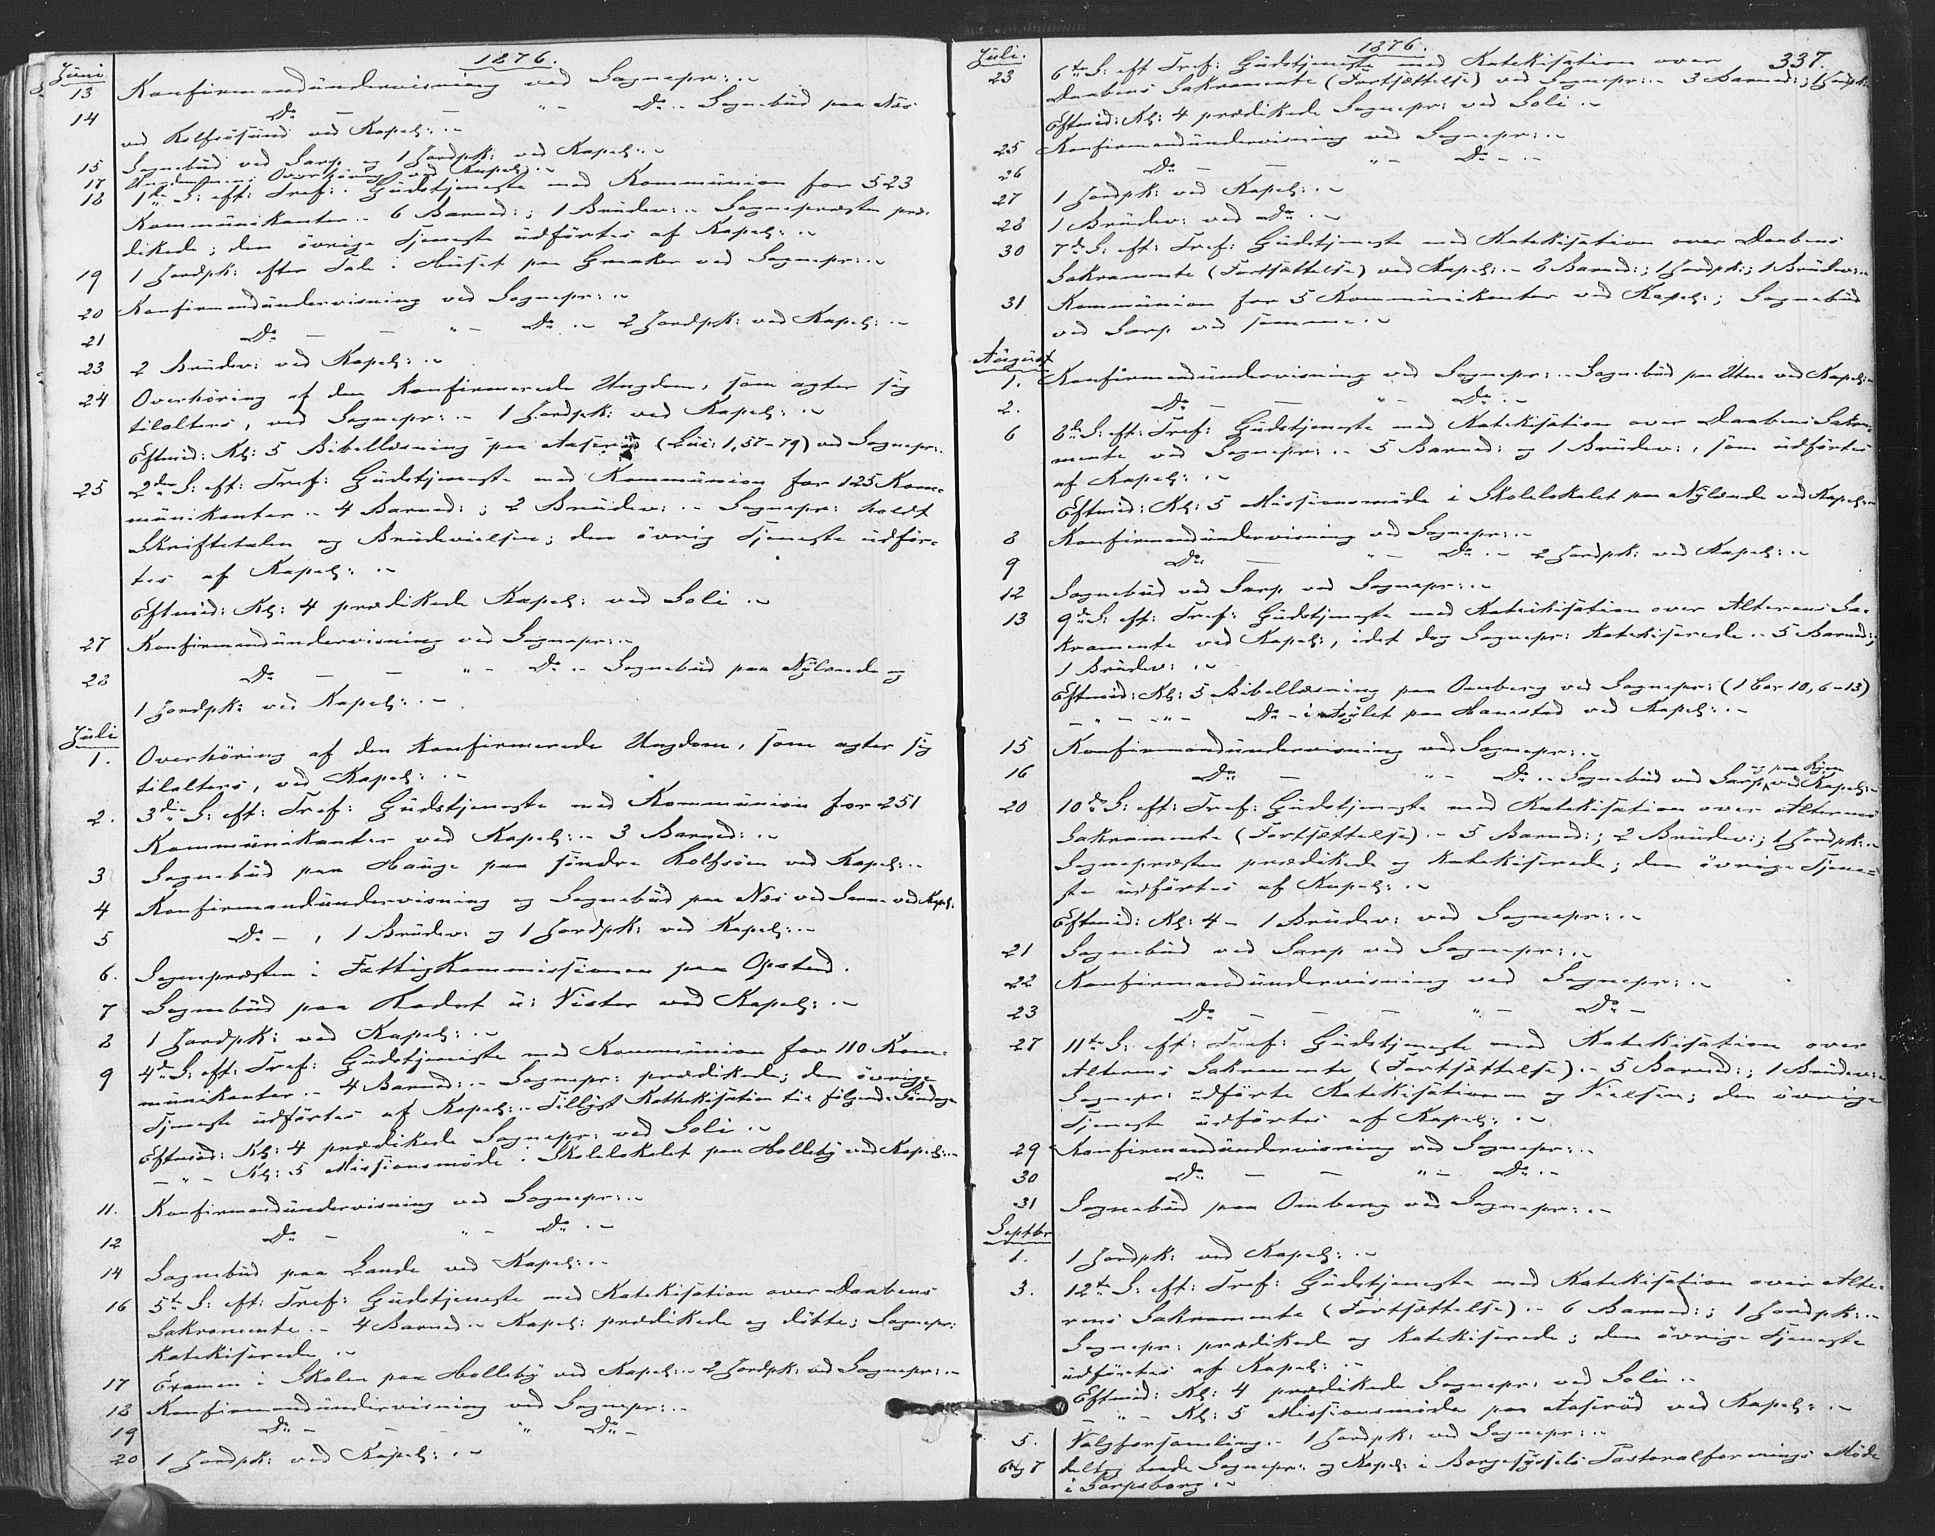 1876.
Juni
13 Konfirmandundervisning ved Sognepr: .~
14 Do — — " – Do .. Sognebud paa Næs
ved Rolfsösund ved Kapel: .~
15 Sognebud ved Sarp og 1 Jordpk: ved Kapel: .~
17 Ungdommens Overhöring ved Kapel: .~
18 1ste S: eft: Tref: Gudstjeneste med Kommunion for 523
Kommunikanter .. 6 Barned: ; 1 Brudev: .. Sognepræsten præ-
dikede; den övrige Tjeneste udförtes af Kapel: .~
19 1 Jordpk: efter Tale i Huset paa Greaker ved Sognepr: .~
20 Konfirmandundervisning ved Sognepr: .~
21 Do — — " – Do .. 2 Jordpk: ved Kapel: .~
23 2 Brudev: ved Kapel: .~
24 Overhöring af den konfirmerede Ungdom, som agter sig
tilalters, ved Sognepr: .. 1 Jordpk: ved Kapel: .~
Eftmid: Kl: 5 Bibellæsning paa Aaseröd (Luc: 1,57–79) ved Sognepr:.
25 2den S: eft: Tref: Gudstjeneste med Kommunion for 125 Kom-
munikanter .. 4 Barned: ; 2 Brudev: .. Sognepr: holdt
Skriftetalen og Brudevielsen; den övrig Tjeneste udför-
tes af Kapel: .~
Eftmid: Kl: 4 prædikede Kapel: ved Soli .~
27 Konfirmandundervisning ved Sognepr: .~
28 Do — — " – Do .. Sognebud paa Nylende og
1 Jordpk: ved Kapel: .~
Juli
1. Overhöring af den konfirmerede Ungdom, som agter sig
tilalters, ved Kapel: .~
2. 3die S: eft: Tref: Gudstjeneste med Kommunion for 251
Kommunikanter ved Kapel: .. 3 Barned: .~
3 Sognebud paa Hauge paa söndre Rolfsöen ved Kapel: .~
4 Konfirmandundervisning og Sognebud paa Næs ved Kapel:
5 Do — , 1 Brudev: og 1 Jordpk: ved Kapel: .~
6. Sognepræsten i Fattigkommissionen paa Opstad.
7 Sognebud paa u: Vister ved Kapel: .~
8 1 Jordpk: ved Kapel: .~
9 4de S: eft: Tref: Gudstjeneste med Kommunion for 110 Kom-
munikanter .. 4 Barned: .. Sognepr: prædikede; den övrige
Tjeneste udförtes af Kapel: .. Tillyst Kathekisation til fölgende Söndage
Eftmid: Kl: 4 prædikede Sognepr: ved Soli .~
– " – Kl: 5 Missionsmöde i Skolelokalet paa Holleby ved Kapel: .~
11. Konfirmandundervisning ved Sognepr: .~
12 Do — " – Do .~
14 Sognebud paa Lande ved Kapel: .~
16 5te S: eft: Tref: Gudstjeneste med Katekisation over Daabens
Sakramente .. 4 Barned .. Kapel: prædikede og döbte; Sognepr:
katekiserede .~
17 Examen i Skolen paa Holleby ved Kapel: .. 2 Jordpk: ved Sognepr: .~
18 Konfirmandundervisning ved Sognepr: .~
19 Do — — — " Do –
20 1 Jordpk: ved Kapel: .~
1876.
337.
Juli.
23 6te S: eft Tref: Gudstjeneste med Katekisation over
Daabens Sakramente (Fortsættelse) ved Sognepr: .. 3 Barned: ; 1 Jordpk:
Eftmid: Kl: 4 prædikede Sognepr: ved Soli .~
25 Konfirmandundervisning ved Sognepr: .~
26 Do — — " – Do – .~
27 1 Jordpk: ved Kapel: .~
28 1 Brudev: ved Do .~
30 7de S: eft: Tref: Gudstjeneste med Katekisation over Daabens
Sakramente (Fortsættelse) ved Kapel: .. 8 Barned: ; 1 Jordpk: ; 1 Brudev: .~
31 Kommunion for 5 Kommunikanter ved Kapel: ; Sognebud
ved Sarp ved samme .~
August
1. Konfirmandundervisning ved Sognepr: .. Sognebud paa Utne ved Kapel: .~
2. Do — — " – Do .~
6 8de S: eft: Tref: Gudstjeneste med Katekisation over Daabens Sakra-
mente ved Sognepr: .. 5 Barned: og 1 Brudev: , som udförtes
af Kapel: .~
Eftmid: Kl: 5 Missionsmöde i Skolelokalet paa Nylende ved Kapel: .~
8 Konfirmandundervisning ved Sognepr: .~
9 Do — " – Do .. 2 Jordpk: ved Kapel: .~
12 Sognebud ved Sarp ved Sognepr: .~
13 9de S: eft: Tref: Gudstjeneste med Katekisation over Alterens Sa-
kramente ved Kapel: , idet dog Sognepr: katekiserede .. 5 Barned: ;
1 Brudev: .~
Eftmid: Kl: 5 Bibellæsning paa Omberg ved Sognepr: (1 Cor 10, 6–13)
– " – – " – Do – i Asylet paa Hannestad ved Kapel: .~
15 Konfirmandundervisning ved Sognepr: .~
16 Do — " – Do .. Sognebud ved Sarp og paa ved Kapel: .~
20 10de S: eft: Tref: Gudstjeneste med Katekisation over Alterens
Sakramente (Fortsættelse) .. 5 Barned: ; 2 Brudev: ; 1 Jordpk: .~
Sognepræsten prædikede og katekiserede; den övrige Tjene-
ste udförtes af Kapel: .~
Eftmid: Kl: 4 – 1 Brudev: ved Sognepr: .~
21 Sognebud ved Sarp ved Sognepr: .~
22 Konfirmandundervisning ved Sognepr: .~
23 Do — — — " – Do –
27 11te S: eft: Tref: Gudstjeneste med Katekisation over
Alterens Sakramente (Fortsættelse) .. 5 Barned: ; 1 Brudev: .~
Sognepr: udförte Katekisationen og Vielsen; den övrige
Tjeneste udförtes af Kapel: .~
29 Konfirmandundervisning ved Sognepr: .~
30 Do — — " – Do .~
31 Sognebud paa Omberg ved Sognepr: .~
Septbr
1. 1 Jordpk: ved Kapel: .~
3. 12te S: eft: Tref: Gudstjeneste med Katekisation over Alte-
rens Sakramente (Fortsættelse) .. 6 Barned: ; 1 Jordpk: .~
Sognepr: prædikede og katekiserede; den övrige Tjeneste
udförtes af Kapel: .~
Eftmid: Kl: 4 prædikede Sognepr: ved Soli .~
– " – Kl: 5 Missionsmöde paa Aaseröd ved Kapel: .~
5. Valgforsamling .. 1 Jordpk: ved Sognepr: .~
6 og 7 deltog baade Sognepr: og Kapel: i Borgesyssels Pastoralforenings Möde
i Sarpsborg .~